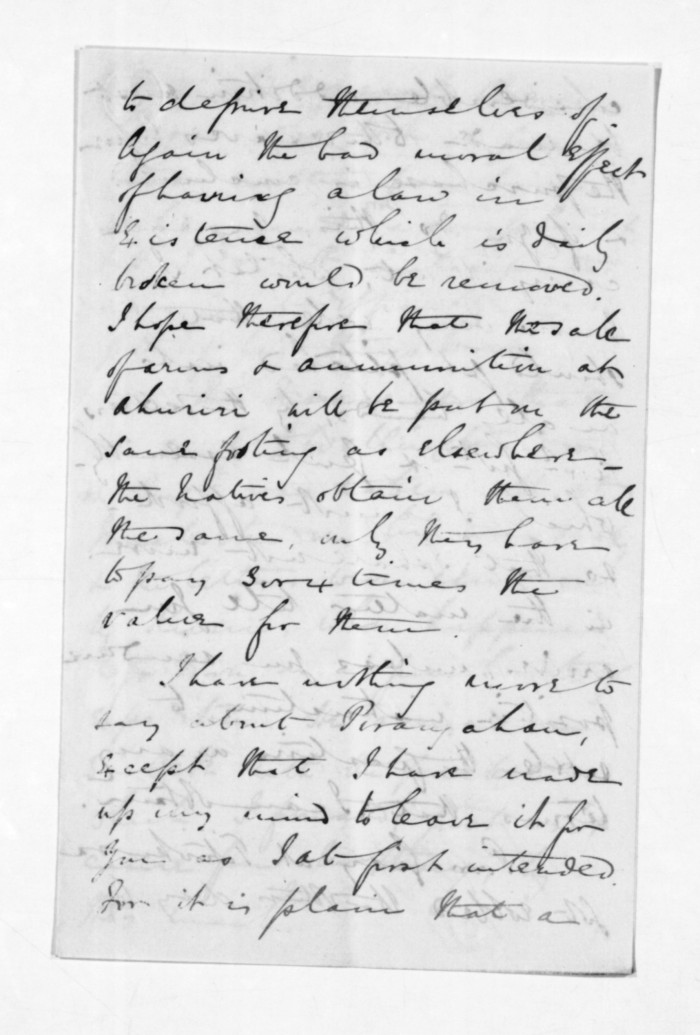 to deprive themselves of.
Again the bad moral effect
of having a law in
Existence which is daily
broken would be removed.
I hope therefore that the sale
of arms & ammunition at
Ahuriri will be put on the
same footing as elsewhere _
the Natives obtain them all
the same, only they have
to pay 3 or 4 times the
value for them.
I have nothing more to
say about Porangahau,
Except that I have made
up my mind to leave it for
you as I at first intended.
For it is plain that a